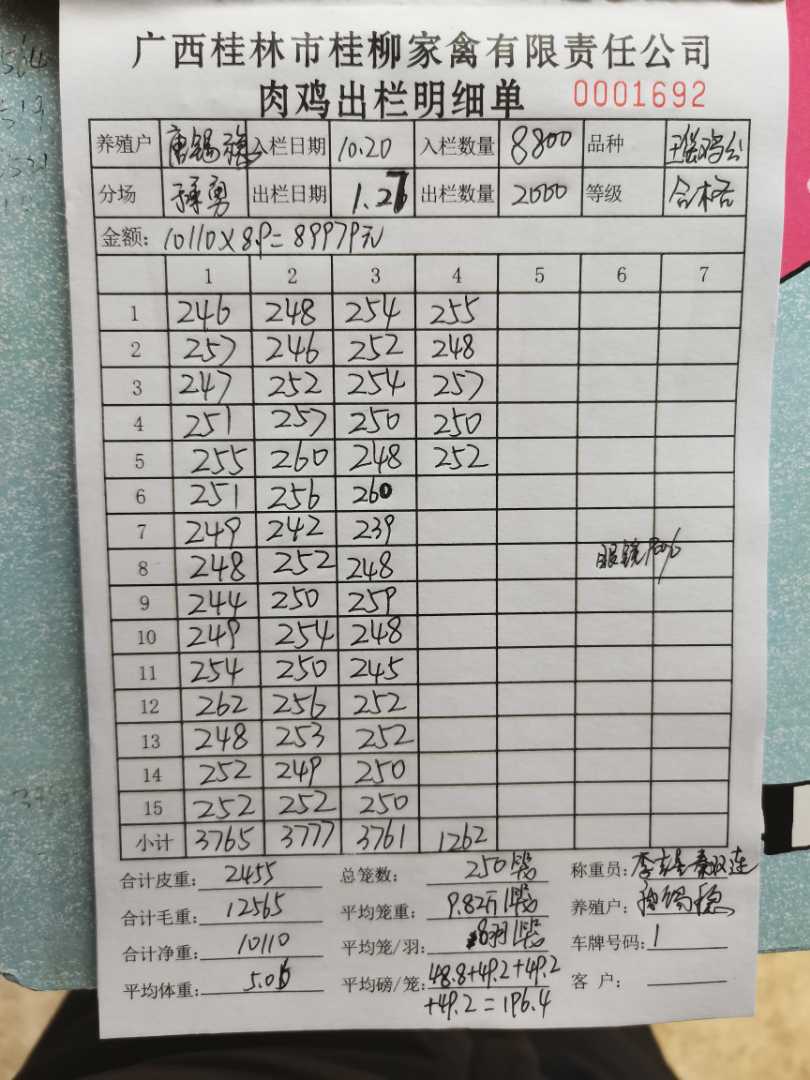 广西桂林市桂柳家禽有限责任公司
肉鸡出栏明细单 0001692
养殖户 唐锡稳 入栏日期 10.20 入栏数量 8800 品种
分场 孙勇 出栏日期 1.27 出栏数量 2000 等级 合格
金额: 10110×8.9=89979元
1 2 3 4 5 6 7
1 246 248 254 255
2 257 246 252 248
3 247 252 254 257
4 251 257 250 250
5 255 260 248 252
6 251 256 260
7 249 242 239
8 248 252 248 眼镜
9 244 250 259
10 249 254 248
11 254 250 245
12 262 256 252
13 248 253 252
14 252 249 250
15 252 252 250
小计 3765 3777 3761 1262
合计皮重: 2455 总笼数: 250 称重员:
合计毛重: 12565 平均笼重: 9.82斤/ 养殖户: 唐锡稳
合计净重: 10110 平均笼/羽: 8羽/ 车牌号码: 1
平均体重: 5.06 平均磅/笼: 48.8+49.2+49.2 客户:
+49.2=196.4